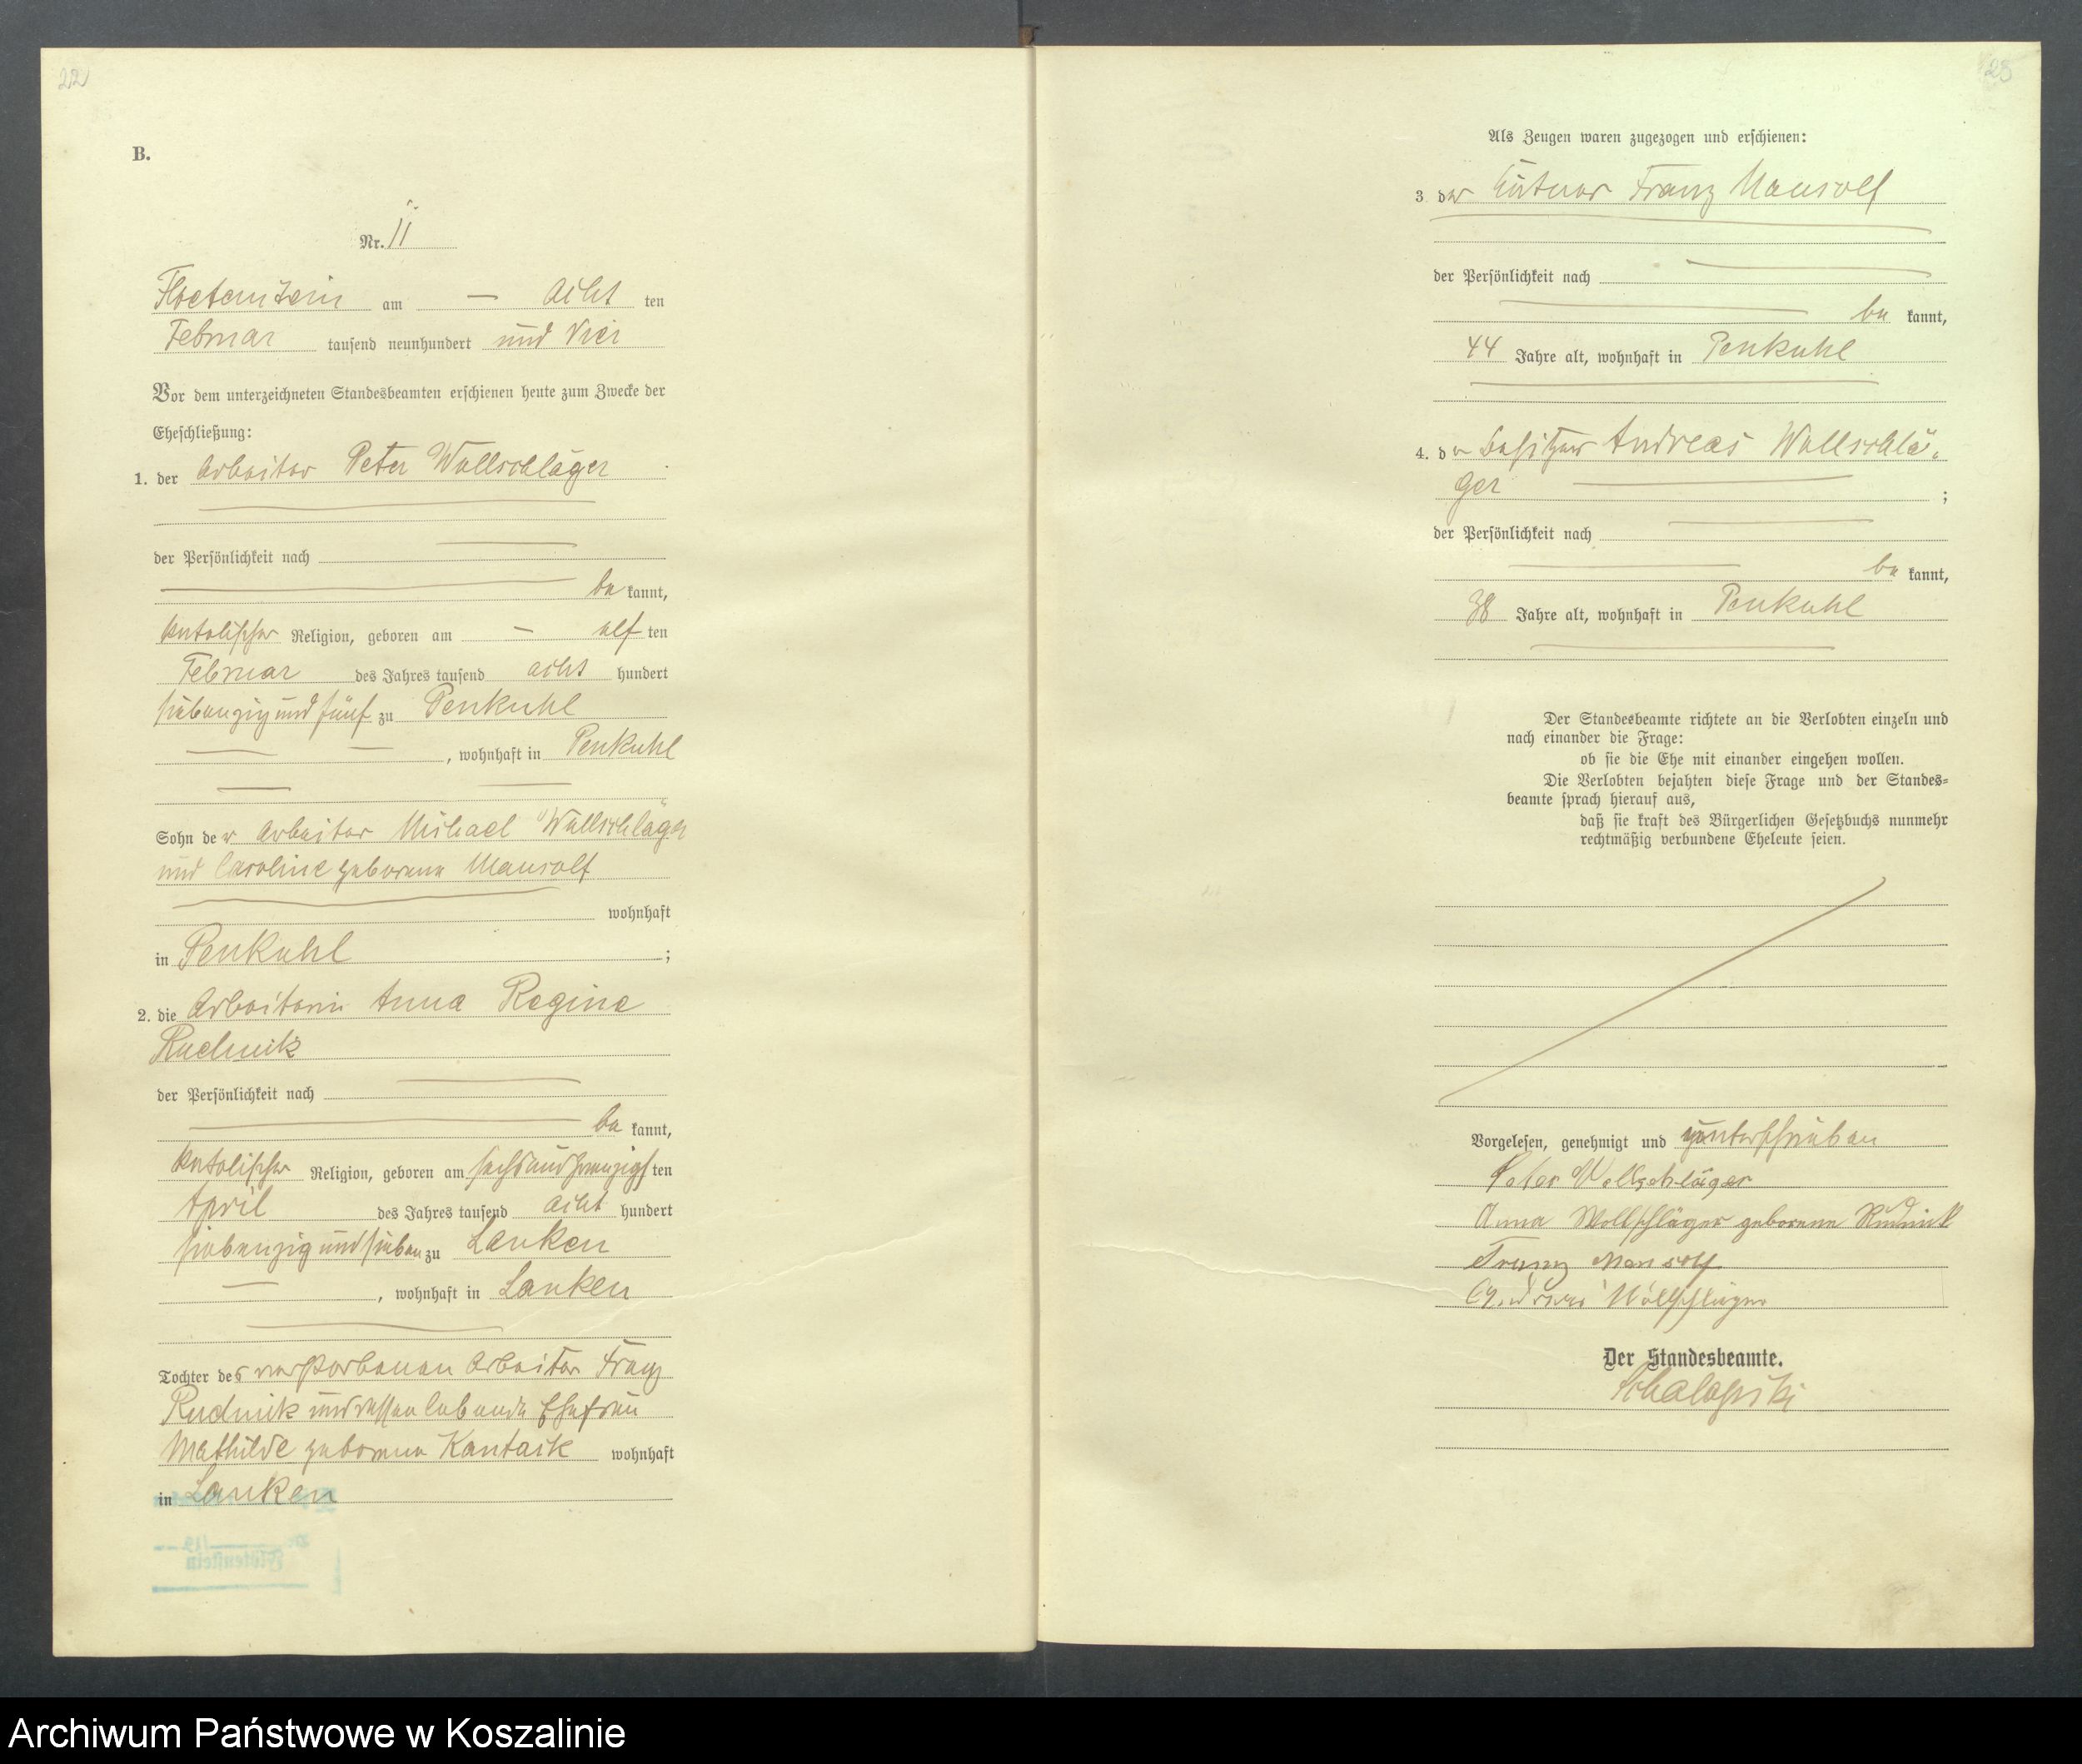 22
B.
Nr. 11
Floetenstein am — acht ten
Februar tausend neunhundert und vier
Vor dem unterzeichneten Standesbeamten erschienen heute zum Zwecke der
Eheschließung:
1. der Arbeiter Peter Wollschläger
der Persönlichkeit nach
be kannt,
katolischer Religion, geboren am — elf ten
Februar des Jahres tausend acht hundert
siebenzig und fünf zu Penkuhl
, wohnhaft in Penkuhl
Sohn der Arbeiter Michael Wollschläger
und Caroline geborene Mansolf
wohnhaft
in Penkuhl ;
2. die Arbeiterin Anna Regine
Rudnik
der Persönlichkeit nach
be kannt,
katolischer Religion, geboren am sechsundzwanzigs ten
April des Jahres tausend acht hundert
siebenzig und sieben zu Lanken
, wohnhaft in Lanken
Tochter des verstorbenen Arbeiter Franz
Rudnik und dessen lebende Ehefrau
Mathilde geborene Kantak wohnhaft
in Lanken
Flötenstein
25
Als Zeugen waren zugezogen und erschienen:
3. der Franz Mansolf
der Persönlichkeit nach
be kannt,
44 Jahre alt, wohnhaft in Penkuhl
4. der Besitzer Andreas Wollschlä-
ger ;
der Persönlichkeit nach
be kannt,
38 Jahre alt, wohnhaft in Penkuhl
Der Standesbeamte richtete an die Verlobten einzeln und
nach einander die Frage:
ob sie die Ehe mit einander eingehen wollen.
Die Verlobten bejahten diese Frage und der Standes=
beamte sprach hierauf aus,
daß sie kraft des Bürgerlichen Gesetzbuchs nunmehr
rechtmäßig verbundene Eheleute seien.
Vorgelesen, genehmigt und unterschrieben
Peter Wollschläger
Anna Wollschläger geborene Rudnik
Franz Mansolf
Andreas Wollschläger
Der Standesbeamte.
Archiwum Państwowe w Koszalinie